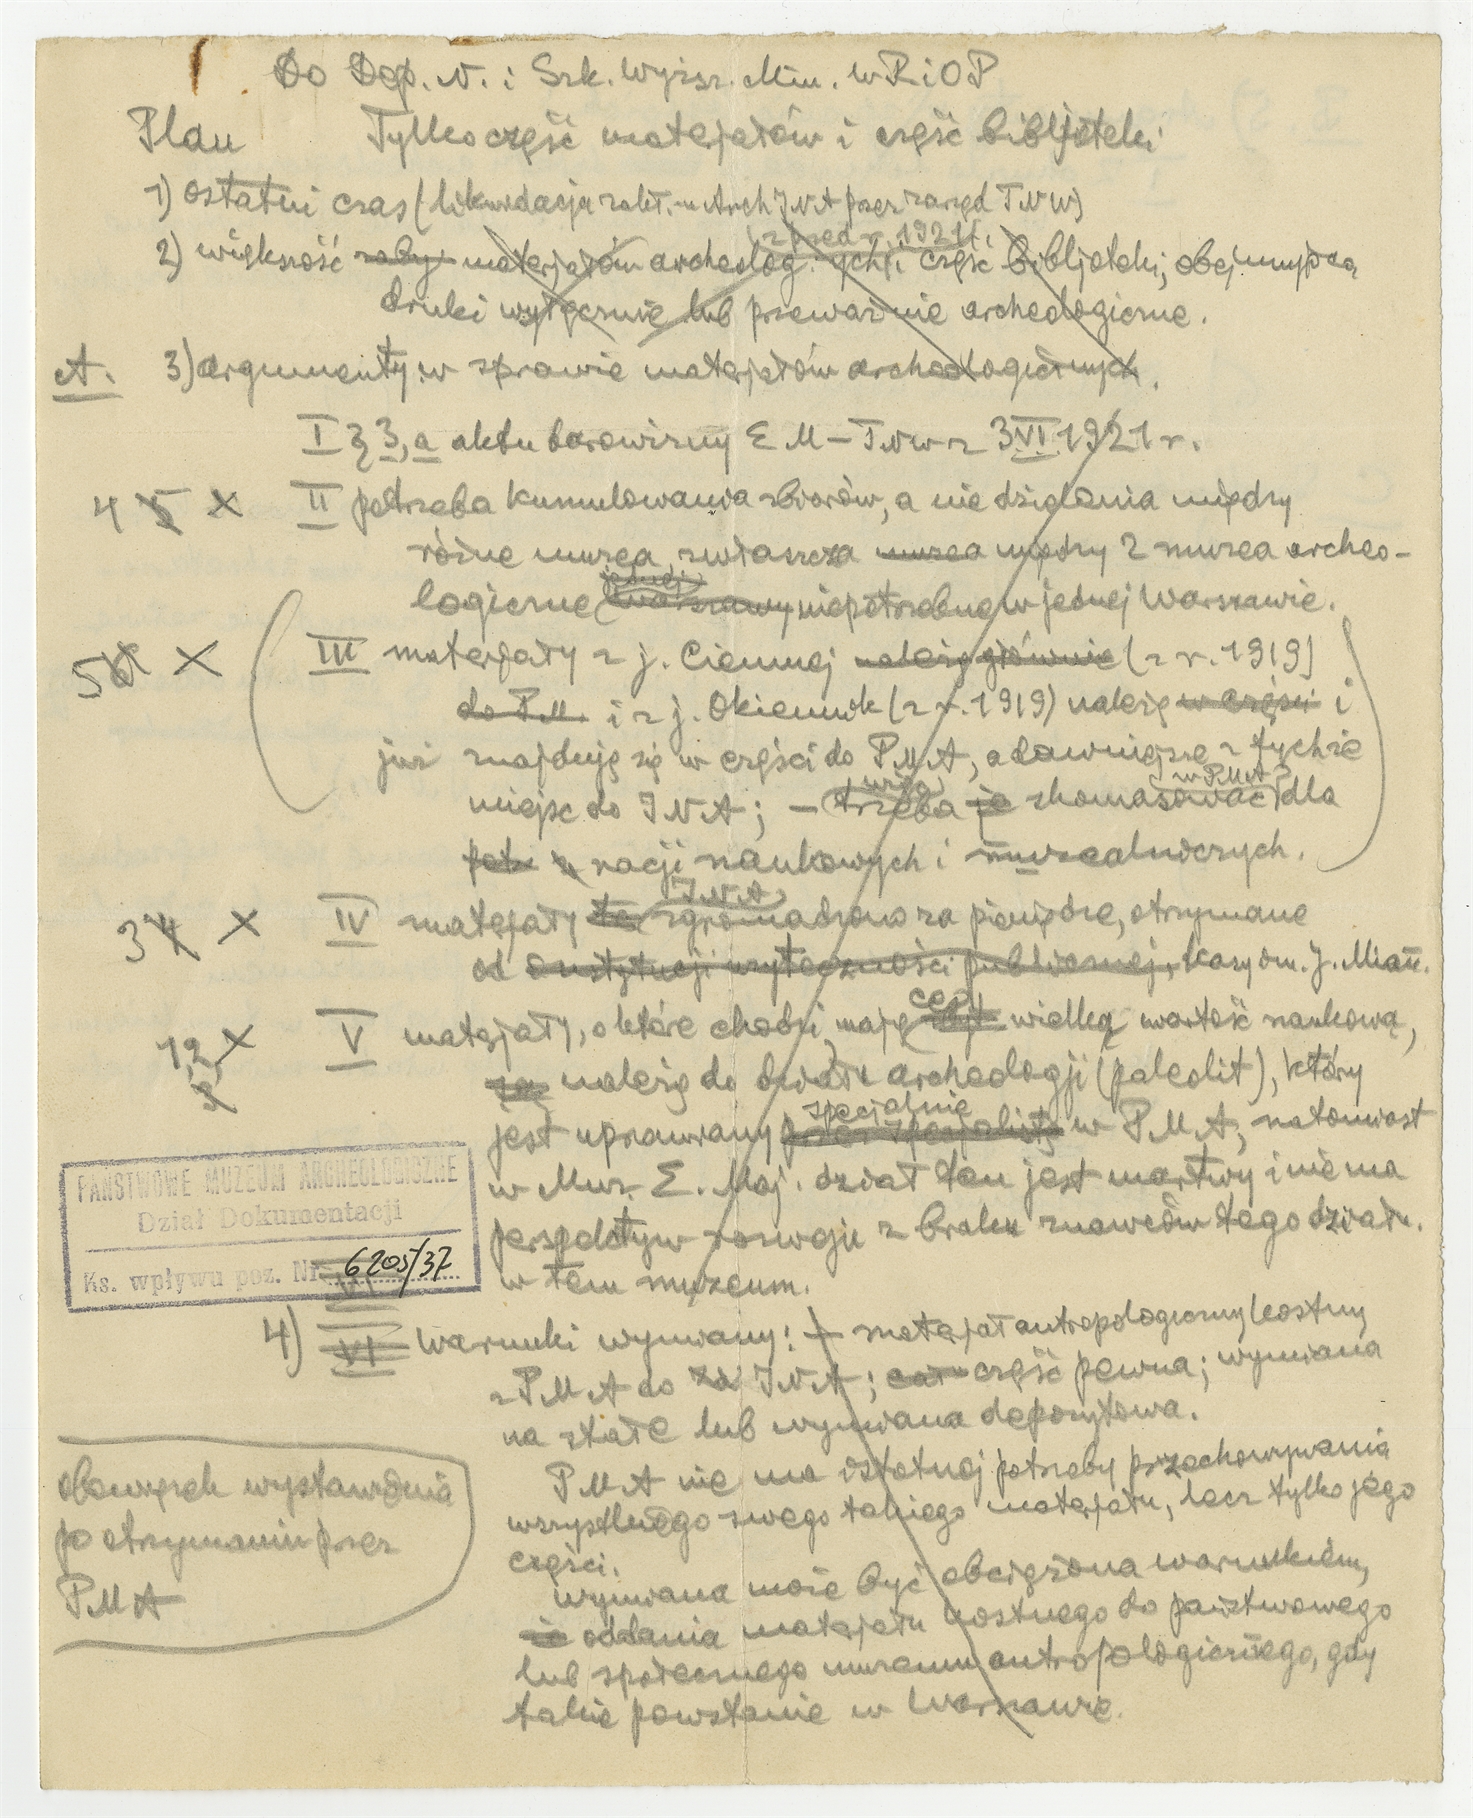 Do Dep. N. i Szk. Wyższ. Min. WRiOP
Plan Tylko część materjałów i część bibljoteki
1) ostatni czas (likwidacja zakł. Arch JNA przez zarząd TNW)
(z przed r. 1921)
2) większość materjałów archeolog. -ych i część bibljoteki, obejmującą
druki wyłącznie lub przeważnie archeologiczne.
A. 3) argumenty: w sprawie materjałów archeologicznych.
I § 3, a aktu darowizny E M – TNW z 3 VI 1921 r.
4 5 X II potrzeba kumulowania zbiorów, a nie dzielenia między
różne muzea, zwłaszcza muzea między 2 muzea archeo-
jednej
logiczne Warszawy niepotrzebne w jednej Warszawie.
5 X III materjały z j. Ciemnej należą głównie (z r. 1919)
do P.M. i z j. Okiennik (z r. 1919) należą w części i
już znajdują się w części do PMA, a dawniejsze z tychże
w PMA
miejsc do JNA; – trzeba je skomasować dla
racji naukowych i muzealniczych.
JNA
3 4 X IV materjały te zgromadzono za pieniądze, otrzymane
od instytucji użyteczności publicznej, Kasy im. J. Mian.
cośś
1,2 X V materjały, o które chodzi, mają wielką wartość naukową,
są należą do działu archeologji (paleolit), który
specjalnie
jest uprawiany przez specjalistę w PMA, natomiast
w Muz. E. Maj. dział ten jest martwy i nie ma
perspektyw rozwoju z braku znawców tego działu.
w tem muzeum.
PAŃSTWOWE MUZEUM ARCHEOLOGICZNE
Dział Dokumentacji
Ks. wpływu poz. Nr 6205/37
4) VI Warunki wymiany: – materjał antropologiczny kostny
z PMA do JNA; część pewna; wymiana
na stałe lub wymiana depozytowa.
PMA nie ma istotnej potrzeby przechowywania
wszystkiego swego takiego materjału, lecz tylko jego
części.
Wymiana może być obciążona warunkiem,
oddania materjału kostnego do państwowego
lub społecznego muzeum antropologicznego, gdy
takie powstanie w Warszawie.
obowiązek wystawienia
po otrzymaniu przez
PMA